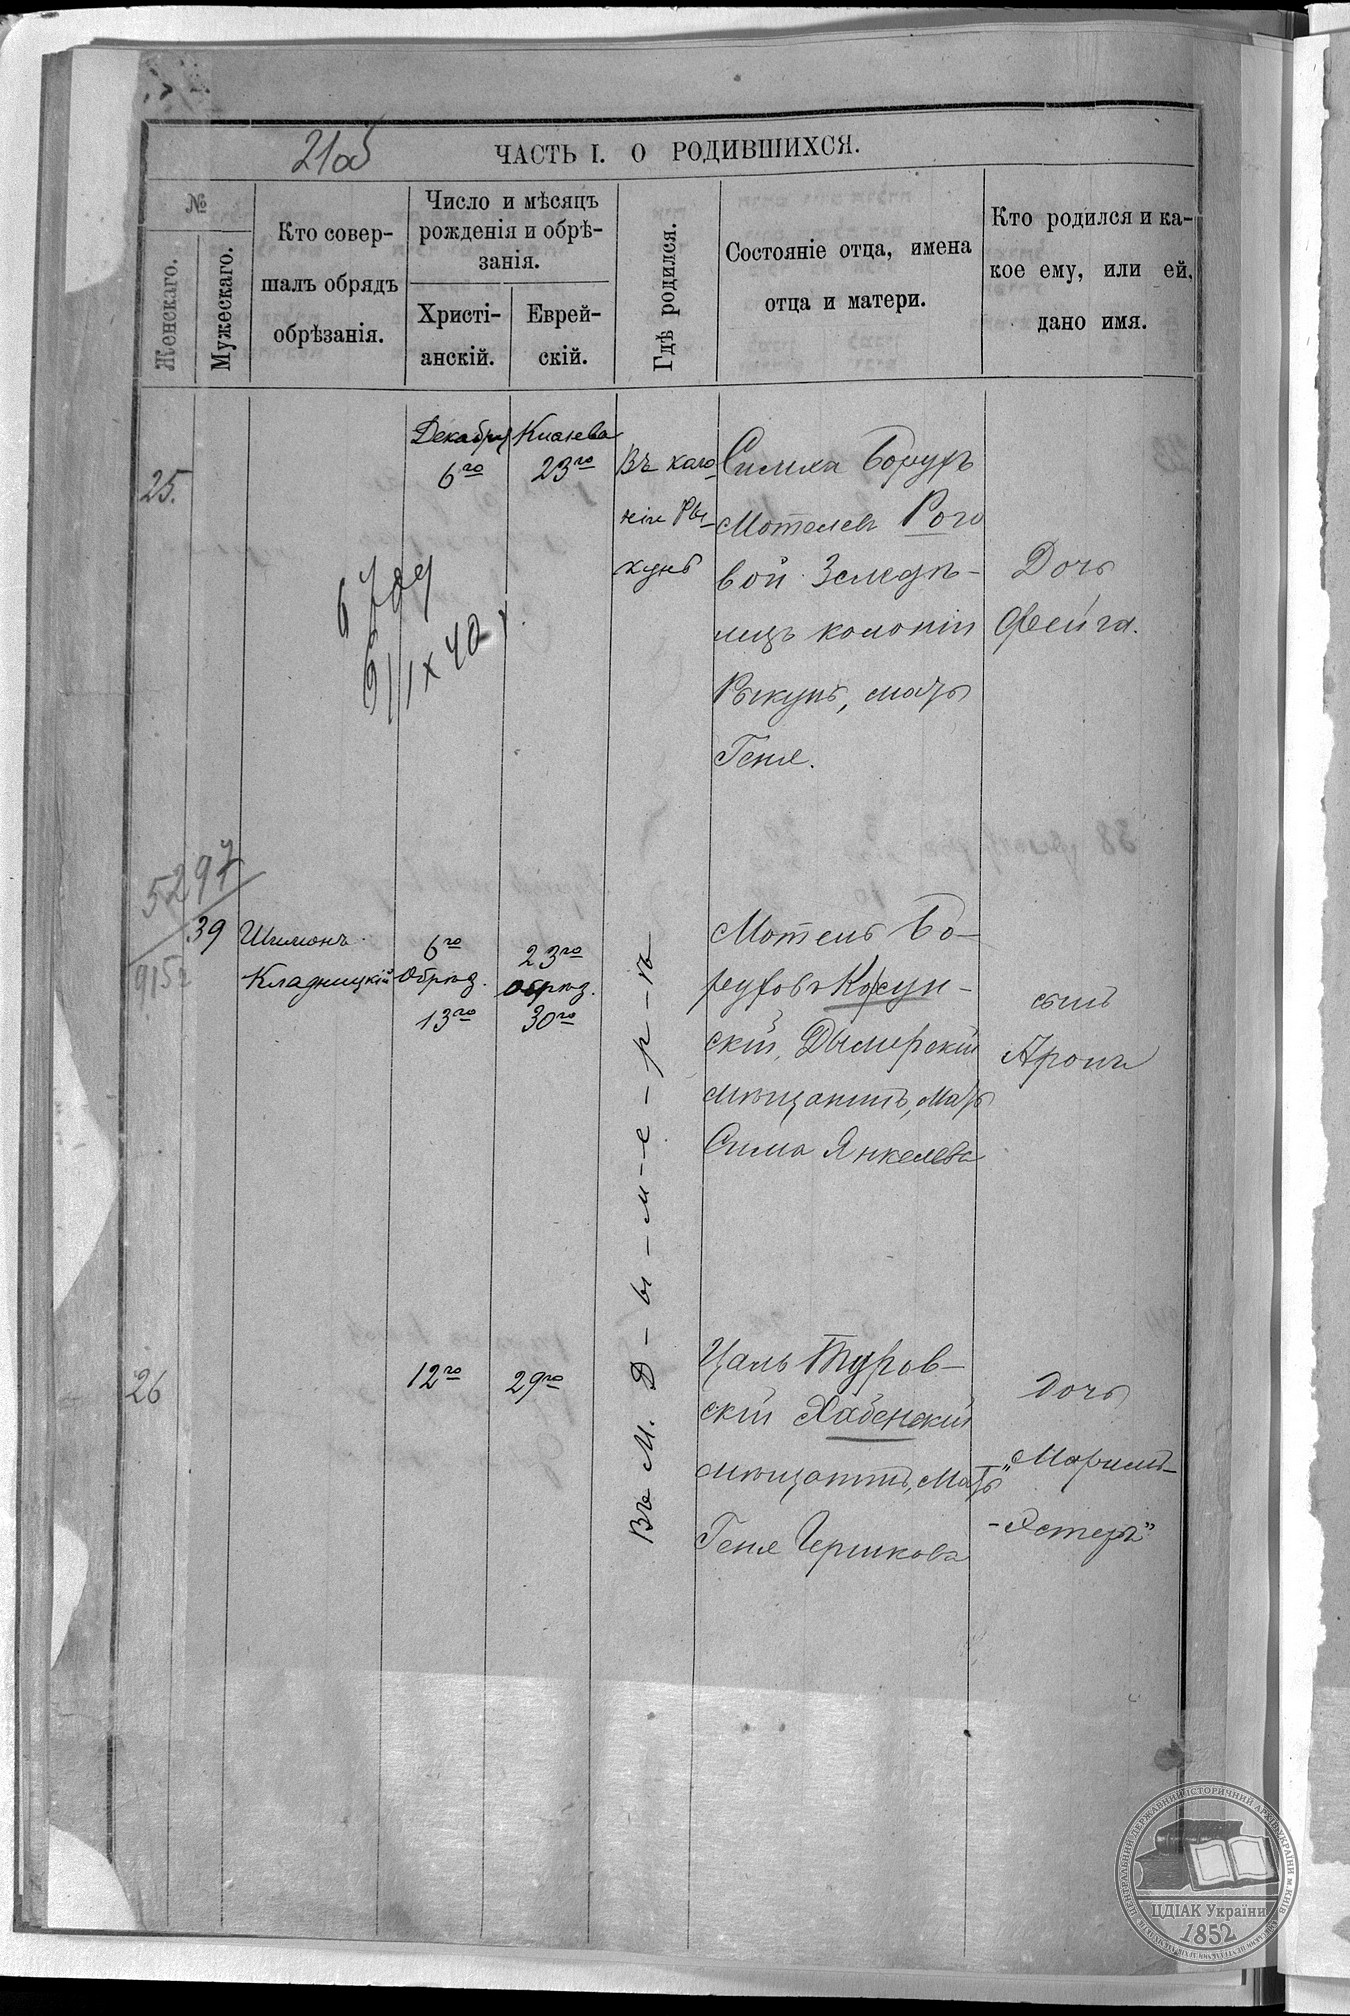 21об
ЧАСТЬ I. О РОДИВШИХСЯ.
№
Женскаго.
Мужескаго.
Кто совер-
шалъ обрядъ
обрѣзанія.
Число и мѣсяцъ
рожденія и обрѣ-
занія.
Христі-
анскій.
Еврей-
скій.
Гдѣ родился.
Состояніе отца, имена
отца и матери.
Кто родился и ка-
кое ему, или ей,
дано имя.
25.
Декабря
6го
Кислева
23го
Въ коло-
ніи Ры-
кунь
Симха Борухъ
Мотелевъ Рого
вой Земледѣ-
лецъ колоніи
Рыкунь, мать
Геня.
Дочь
Фейга.
6/IX 40
5297
9152
39
Шимонъ
Кладницкій
6го
Обрѣз.
13го
23го
Обрѣз.
30го
Въ М. Д-ы-м-е-р-ѣ
Мотель Бо-
руховъ Корсун-
скій, Дымерскій
мѣщанинъ, мать
Сима Янкелева
сынъ
Аронъ
26
12го
29го
Цаль Туров-
скій Хабенскій
мѣщанинъ, мать
Геня Гершкова
Дочь
„Маримъ-
-Эстеръ"
ЦЕНТРАЛЬНИЙ ДЕРЖАВНИЙ ІСТОРИЧНИЙ АРХІВ УКРАЇНИ м. КИЇВ
ЦДІАК України
1852